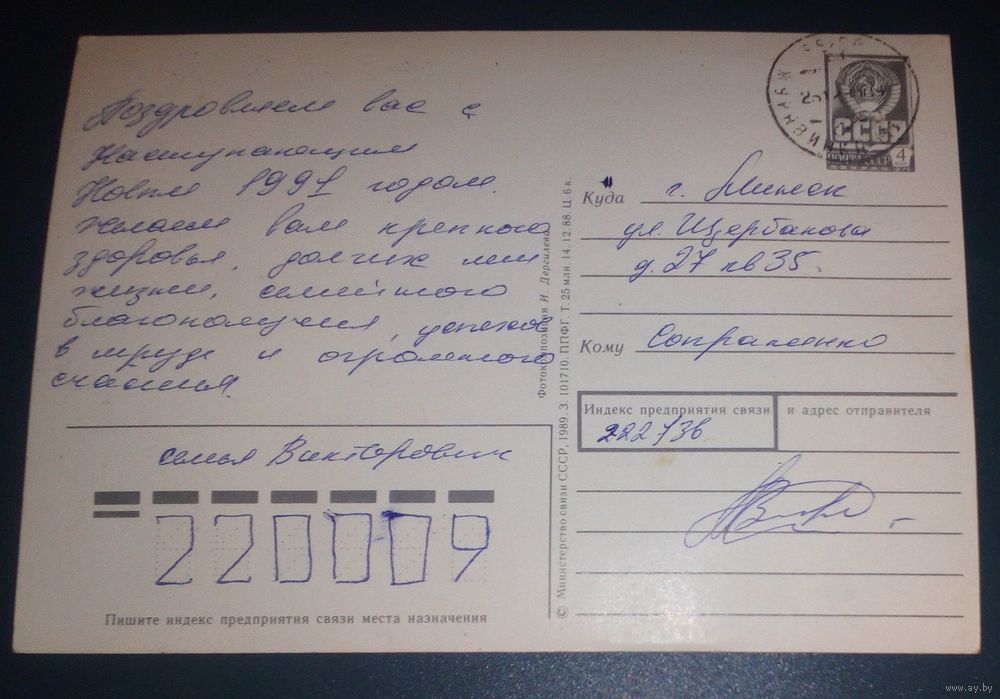 Поздравляем вас с
Наступающим
Новым 1991 годом.
Желаем вам крепкого
здоровья, долгих лет
жизни, семейного
благополучия, успехов
в труде и огромного
счастья.
семья Викторович
220009
Пишите индекс предприятия связи места назначения
Фотокомпозиция И. Дергилева
© Министерство связи СССР, 1989. З. 101710. ППФГ. Т. 25 млн. 14.12.88. Ц. 6 к.
СССР
ПОЧТА СССР 4
Куда г. Минск
ул. Щербакова
д. 27 кв 35.
Кому Сопраненко
Индекс предприятия связи и адрес отправителя
222736
www.ay.by